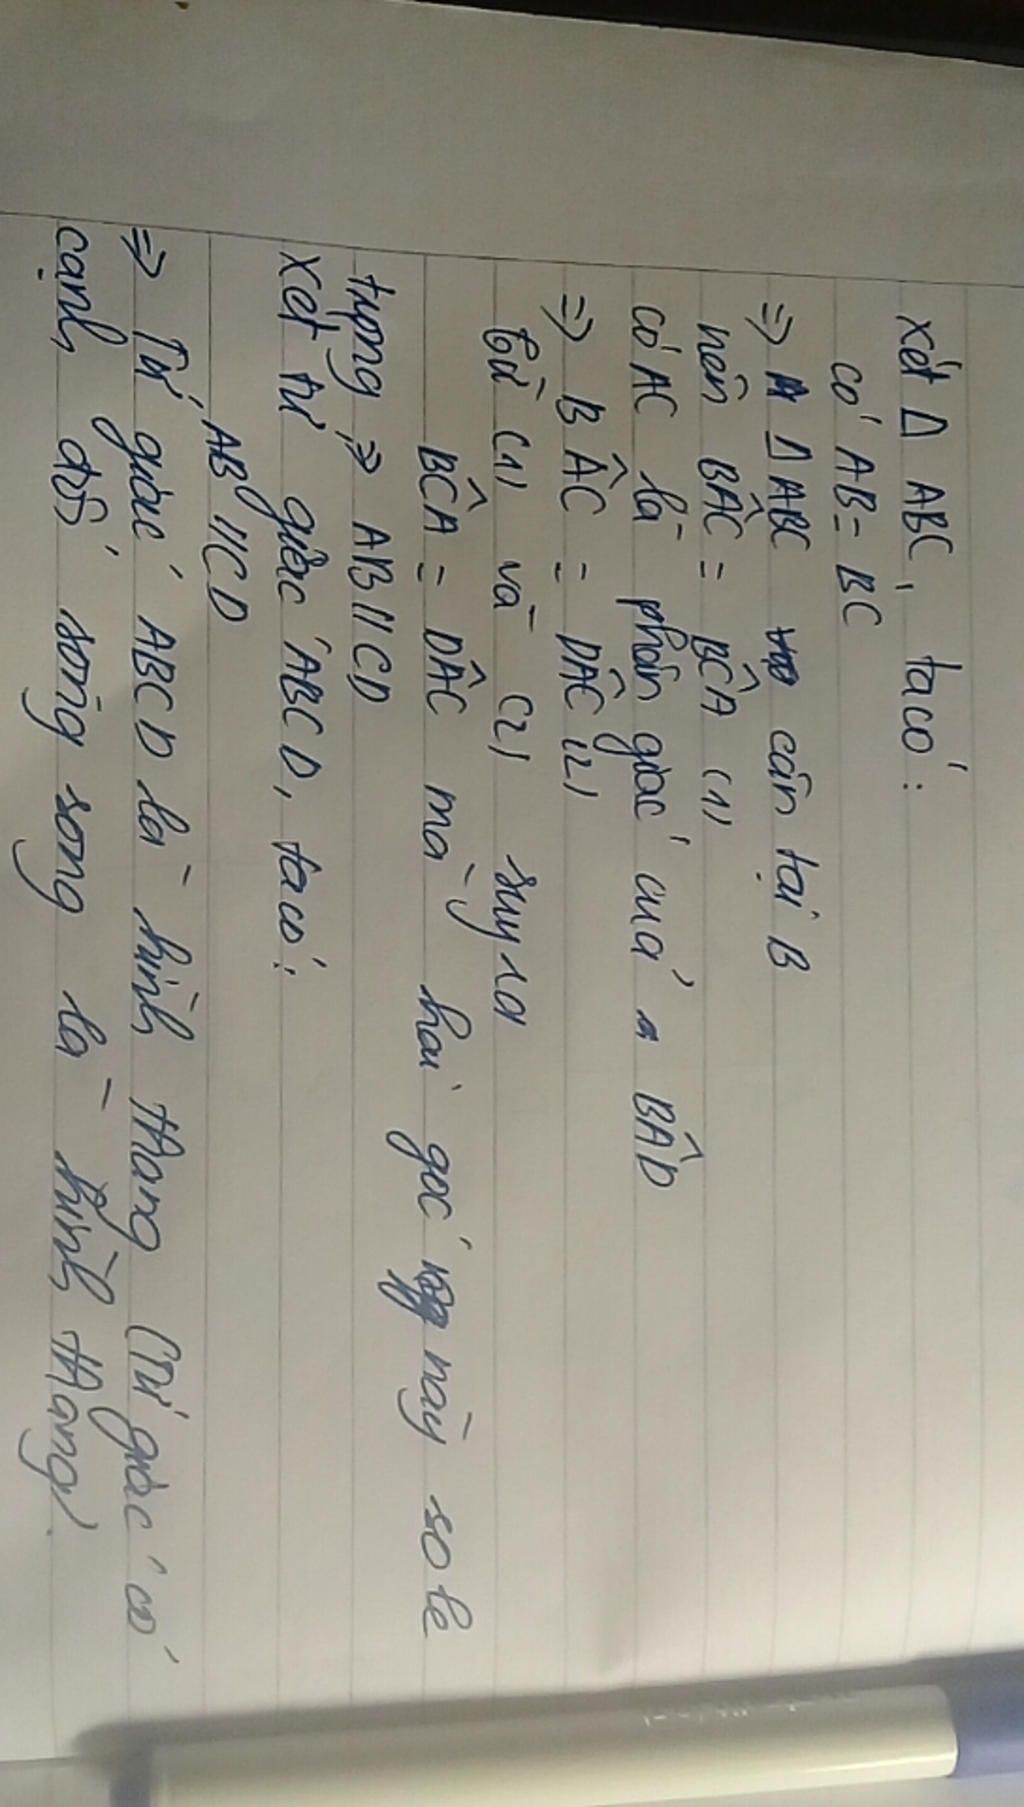 xét Δ ABC, ta có:
có AB = BC
=> Δ ABC cân tại B
nên BÂC = BĈA (1)
có AC là phân giác của BÂD
=> BÂC = DÂC (2)
từ (1) và (2) suy ra
BĈA = DÂC mà hai góc này so le
trong => AB // CD
xét tứ giác ABCD, ta có:
AB // CD
=> Tứ giác ABCD là hình thang (Tứ giác có
cạnh đối song song là hình thang).